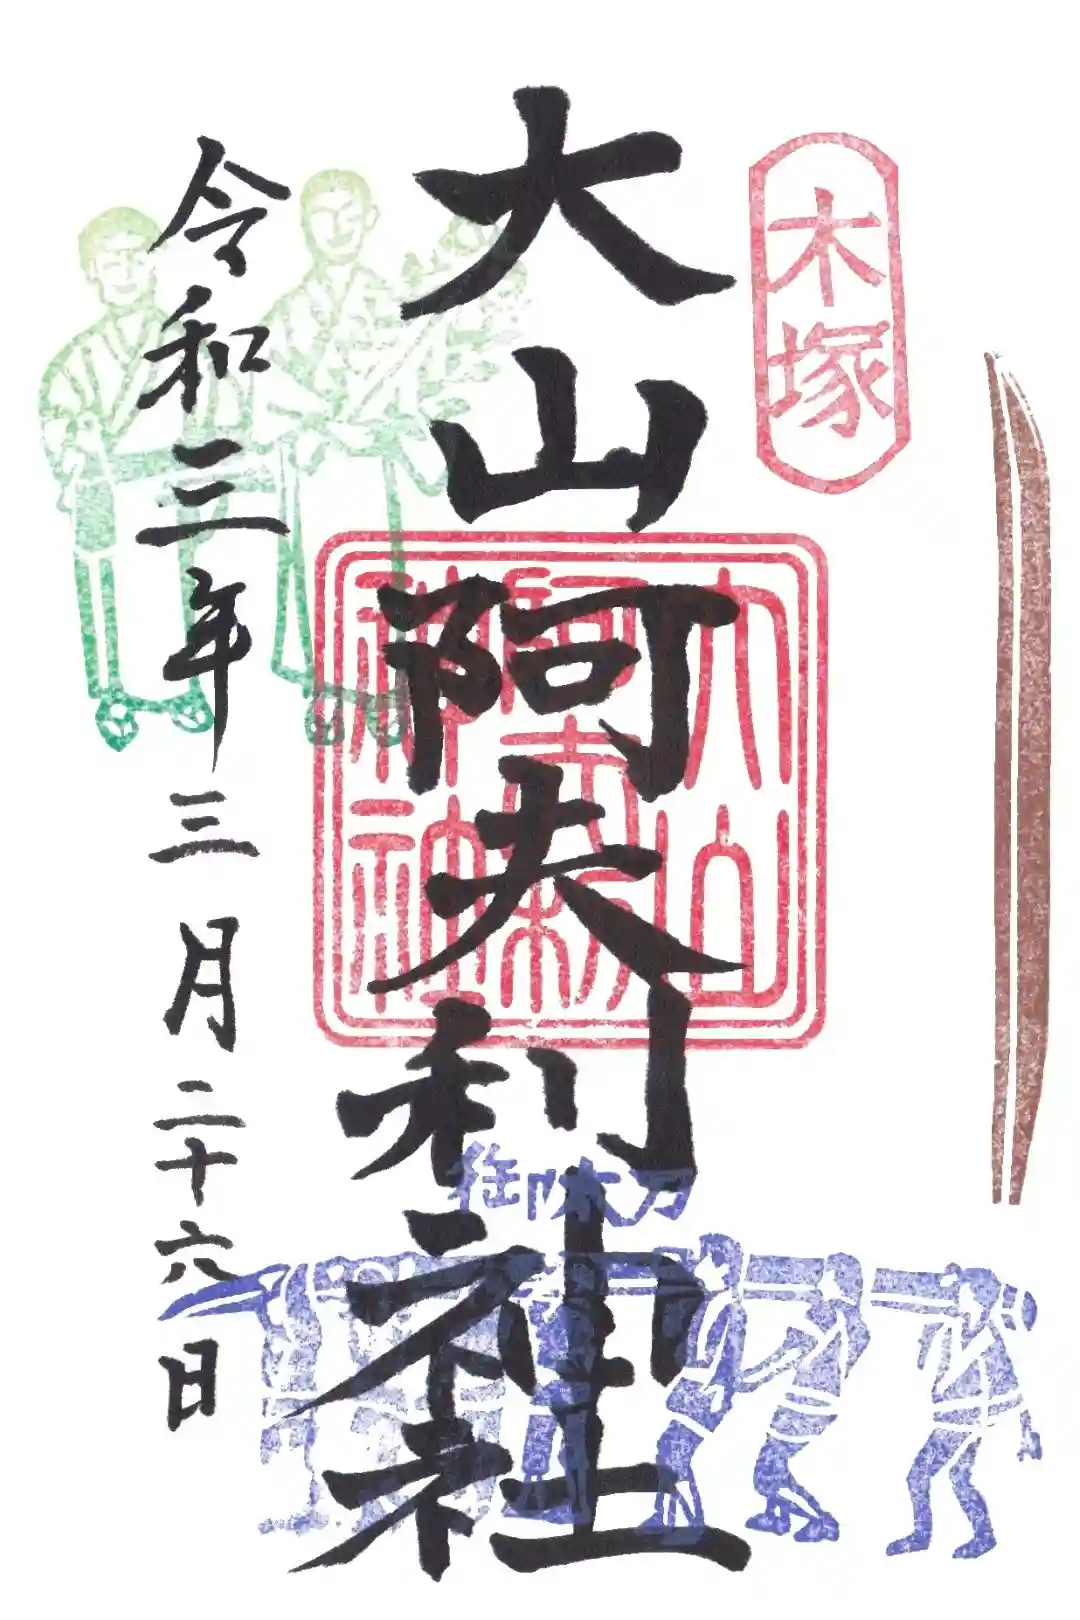 木塚
大山阿夫利神社
大山
阿夫利
神社
御木刀
令和三年三月二十六日